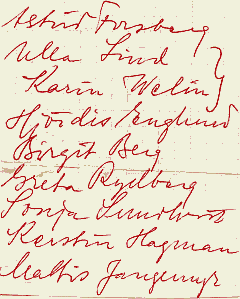 Astrid Forsberg
Ulla Lind
Karin Welin
Hjördis Englund
Birgit Berg
Greta Rydberg
Sonja Lundkvist
Kerstin Hagman
Maltis